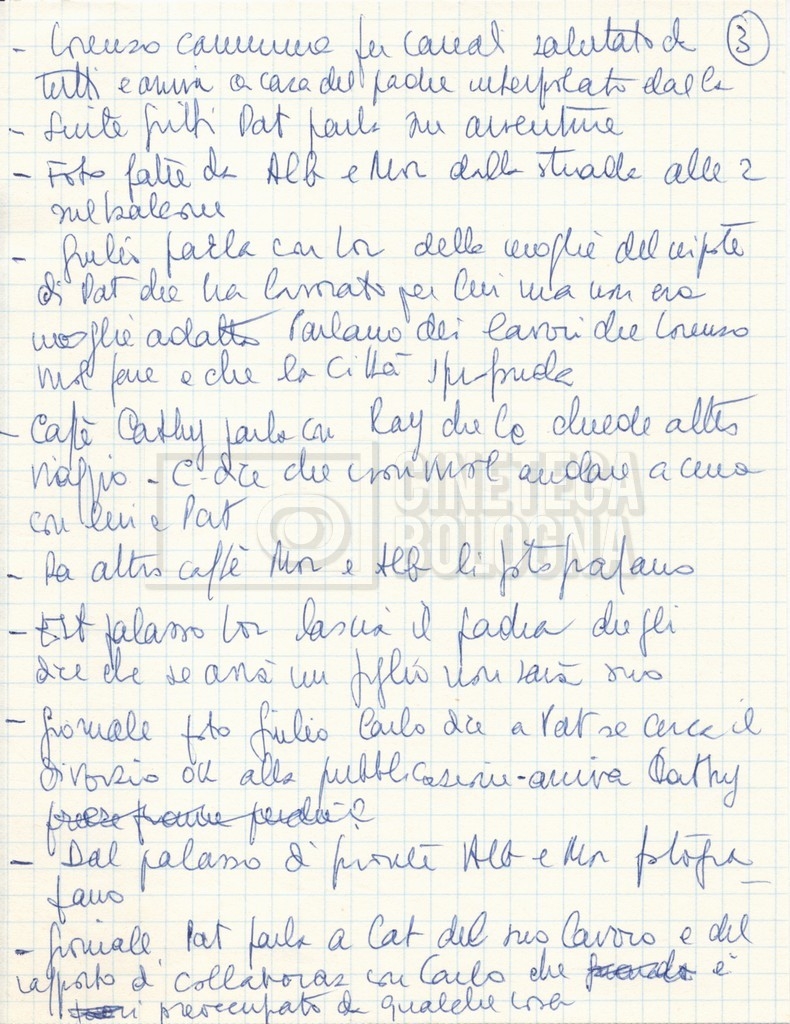 3
- Lorenzo cammina per canali salutato da
tutti e arriva a casa del padre interpolato dalla
- Suite Gritti Pat parla su avventure
- Foto fatte da Alb e Mor dalla strada alle 2
sul balcone
- Giulio parla con Lor della moglie del nipote
di Pat che ha lavorato per lui ma non era
moglie adatta Parlano dei lavori che Lorenzo
vuol fare e che la città
- Caffè Cathy parla con Ray che le chiede altro
viaggio - C. dice che non vuol andare a cena
con lui e Pat
- Da altro caffè Mor e Alb li fotografano
- Est palasso Lor lascia il padre che gli
dice che se avrà un figlio non sarà suo
- Giornale foto Giulio Carlo dice a Pat se cerca il
divorzio ok alla pubblicazione - arriva Cathy
- Dal palasso di fronte Alb e Mor fotogra_
fano
- Giornale Pat parla a Cat del suo lavoro e del
rapporto di collaboraz con Carlo che è
preoccupato da qualche cosa
CINETECA
BOLOGNA